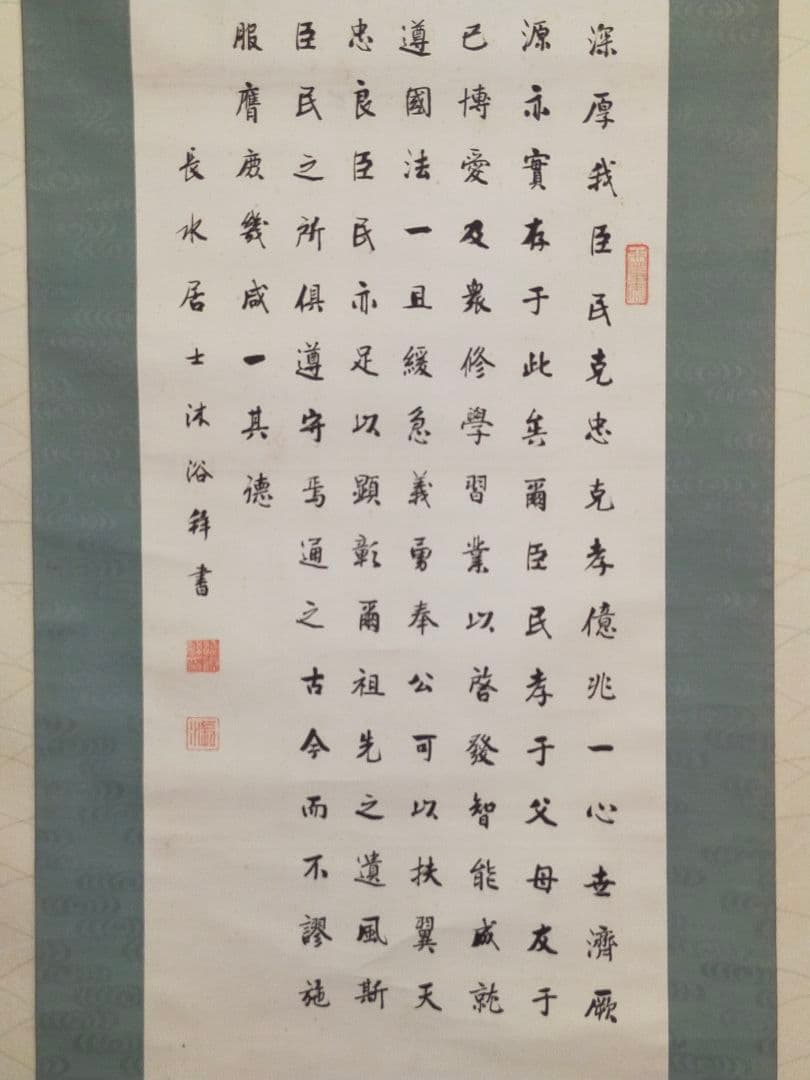 深厚我臣民克忠克孝億兆一心世濟厥
源亦實存于此矣爾臣民孝于父母友于
已博愛及衆修學習業以啓發智能成就
遵國法一旦緩急義勇奉公可以扶翼天
忠良臣民亦足以顯彰爾祖先之遺風斯
臣民之所俱遵守焉通之古今而不謬施
服膺庶幾咸一其德
長水居士沐浴拜書